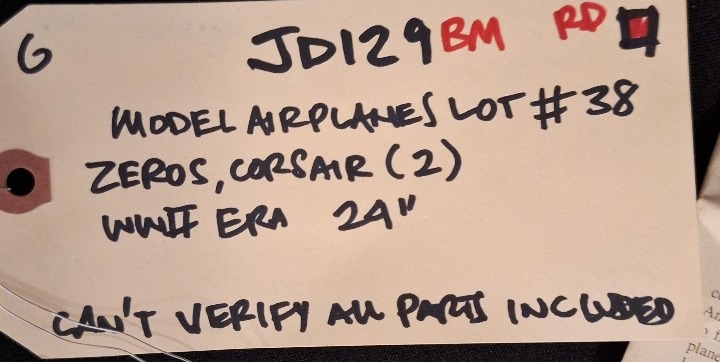 G JD129 BM RD
MODEL AIRPLANES LOT # 38
ZEROS, CORSAIR (2)
WWII ERA 24"
CAN'T VERIFY ALL PARTS INCLUDED